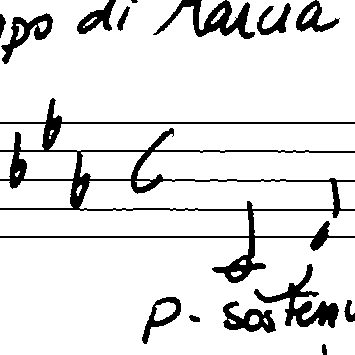 mpo di Marcia
p. sosten